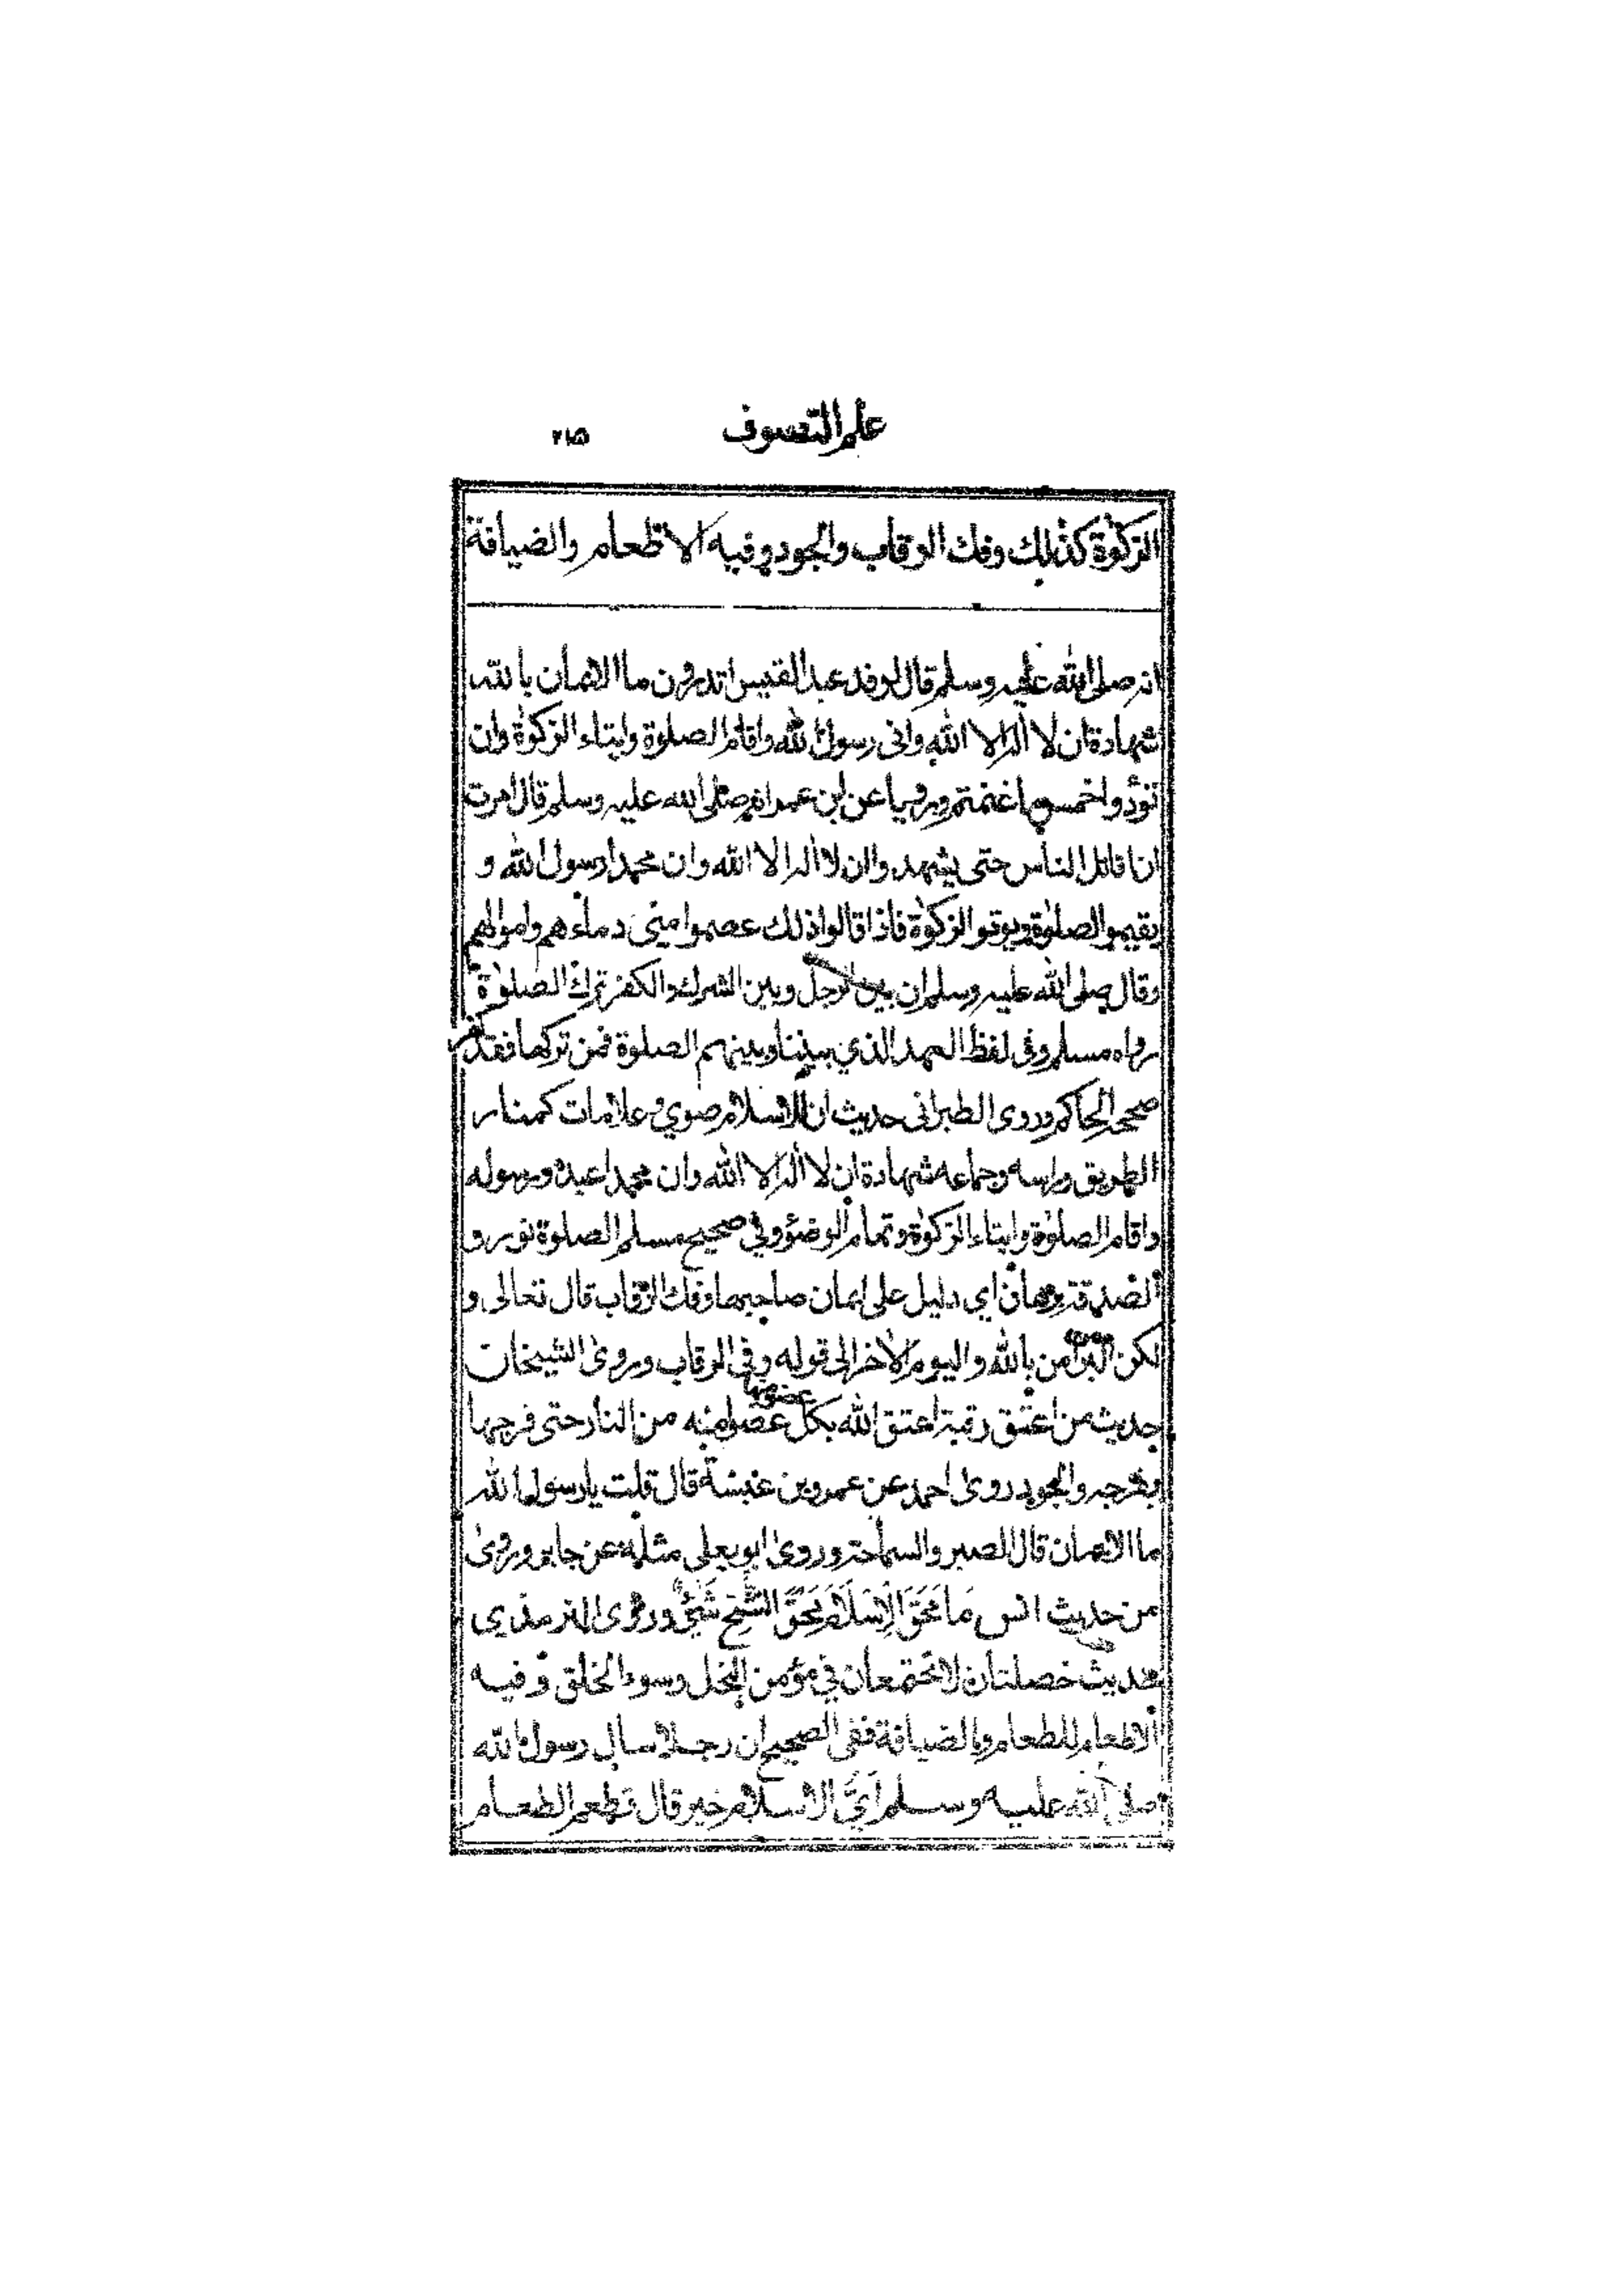 علم التصوف ٢١٥
الزكوة كذلك وفك الرقاب والجود وفيه الاطعام والضيافة
انه صلى الله عليه وسلم قال لوفد عبد القيس اتدرون ما الايمان بالله
شهادة ان لا اله الا الله وانى رسول الله واقام الصلوة وايتاء الزكوة وان
تؤدوا خمس ما غنمتم ورويا عن ابن عمر انه صلى الله عليه وسلم قال امرت
ان اقاتل الناس حتى يشهدوا ان لا اله الا الله وان محمدا رسول الله و
يقيموا الصلوة ويوتوا الزكوة فاذا قالوا ذلك عصموا منى دماءهم واموالهم
وقال صلى الله عليه وسلم ان بين الرجل وبين الشرك والكفر ترك الصلوة
رواه مسلم وفى لفظ العهد الذي بيننا وبينهم الصلوة فمن تركها فقد كفر
صححه الحاكم وروى الطبرانى حديث ان للاسلام صوي وعلامات كمنار
الطريق وراسه وجماعه شهادة ان لا اله الا الله وان محمدا عبده ورسوله
واقام الصلوة وايتاء الزكوة وتمام الوضوء وفي صحيح مسلم الصلوة نور و
الصدقة برهان اي دليل على ايمان صاحبها وفك الرقاب قال تعالى و
لكن البر من امن بالله واليوم الاخر الى قوله وفى الرقاب وروى الشيخان
حديث من اعتق رقبة اعتق الله بكل عضو منها عضوا منه من النار حتى فرجها
بفرجه والجود روى احمد عن عمرو بن عنبسة قال قلت يا رسول الله
ما الايمان قال الصبر والسماحة وروى ابو يعلى مثله عن جابر وروى
من حديث انس مَا مَحَقَ الْاِسْلَامَ مَحَقَ الشُّحِّ شَيْئٌ وروى الترمذي
حديث خصلتان لا تجتمعان في مؤمن البخل وسوء الخلق وفيه
الاطعام للطعام والضيافة ففى الصحيح ان رجلا سال رسول الله
صلى الله عليه وسلم اَيُّ الاسلام خير قال تطعم الطعام